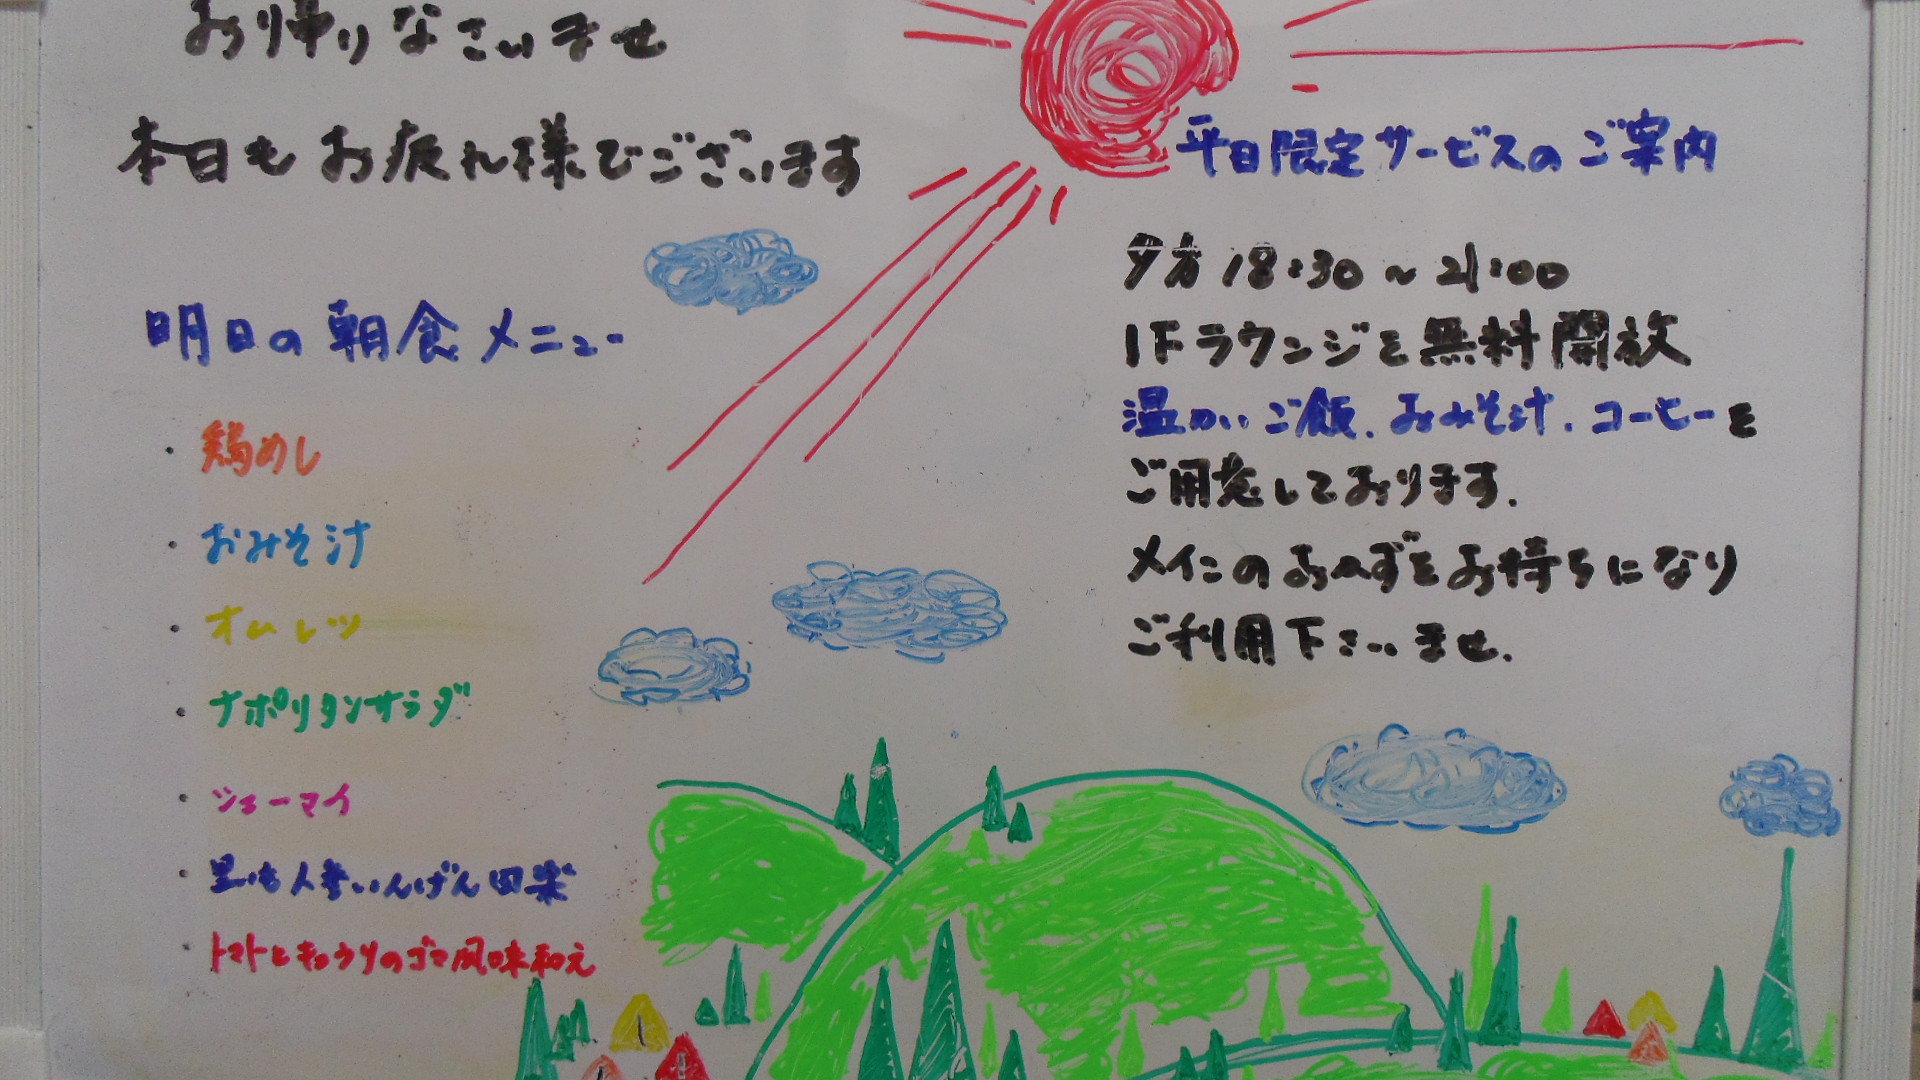 お帰りなさいませ
本日もお疲れ様でございます
明日の朝食メニュー
・鶏めし
・おみそ汁
・オムレツ
・ナポリタンサラダ
・シューマイ
・里いも人参いんげん田楽
・トマトとキュウリのゴマ風味和え
平日限定サービスのご案内
夕方18:30～21:00
1Fラウンジを無料開放
温かいご飯、おみそ汁、コーヒーを
ご用意しております。
メインのおかずをお持ちになり
ご利用下さいませ。